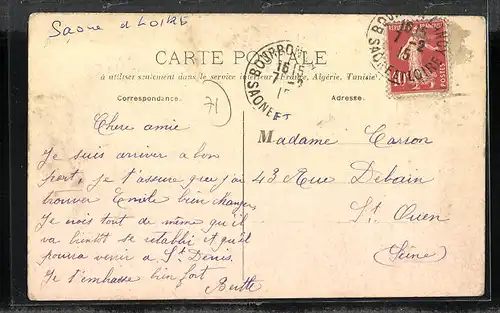 Saone et LOIRE
CARTE POSTALE
à utiliser seulement dans le service intérieur (France, Algérie, Tunisie).
Correspondance.
71
Adresse.
BOURBON
SAONE ET
16
7
BOU
SAONE ET LOIRE
10
POSTES
Chere amie
Je suis arriver a bon
port, je t'assure que j'ai
trouver Emile bien changer
Je crois tout de même qu'il
va bientôt se retablir et qu'il
pourra venir a St Denis
Je t'embrasse bien fort
Berthe
Madame Carron
43 Rue Debain
St Ouen
(Seine)